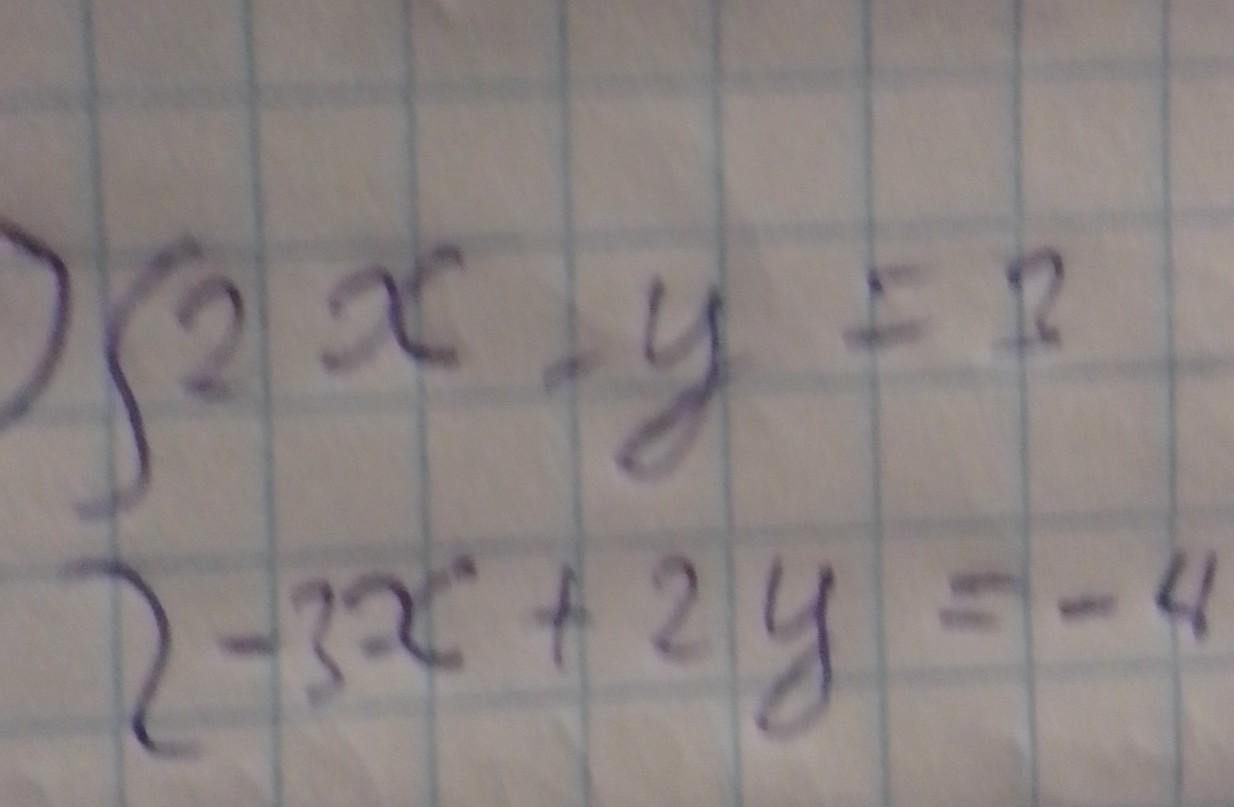 ) { 2x - y = 2
-3x + 2y = -4